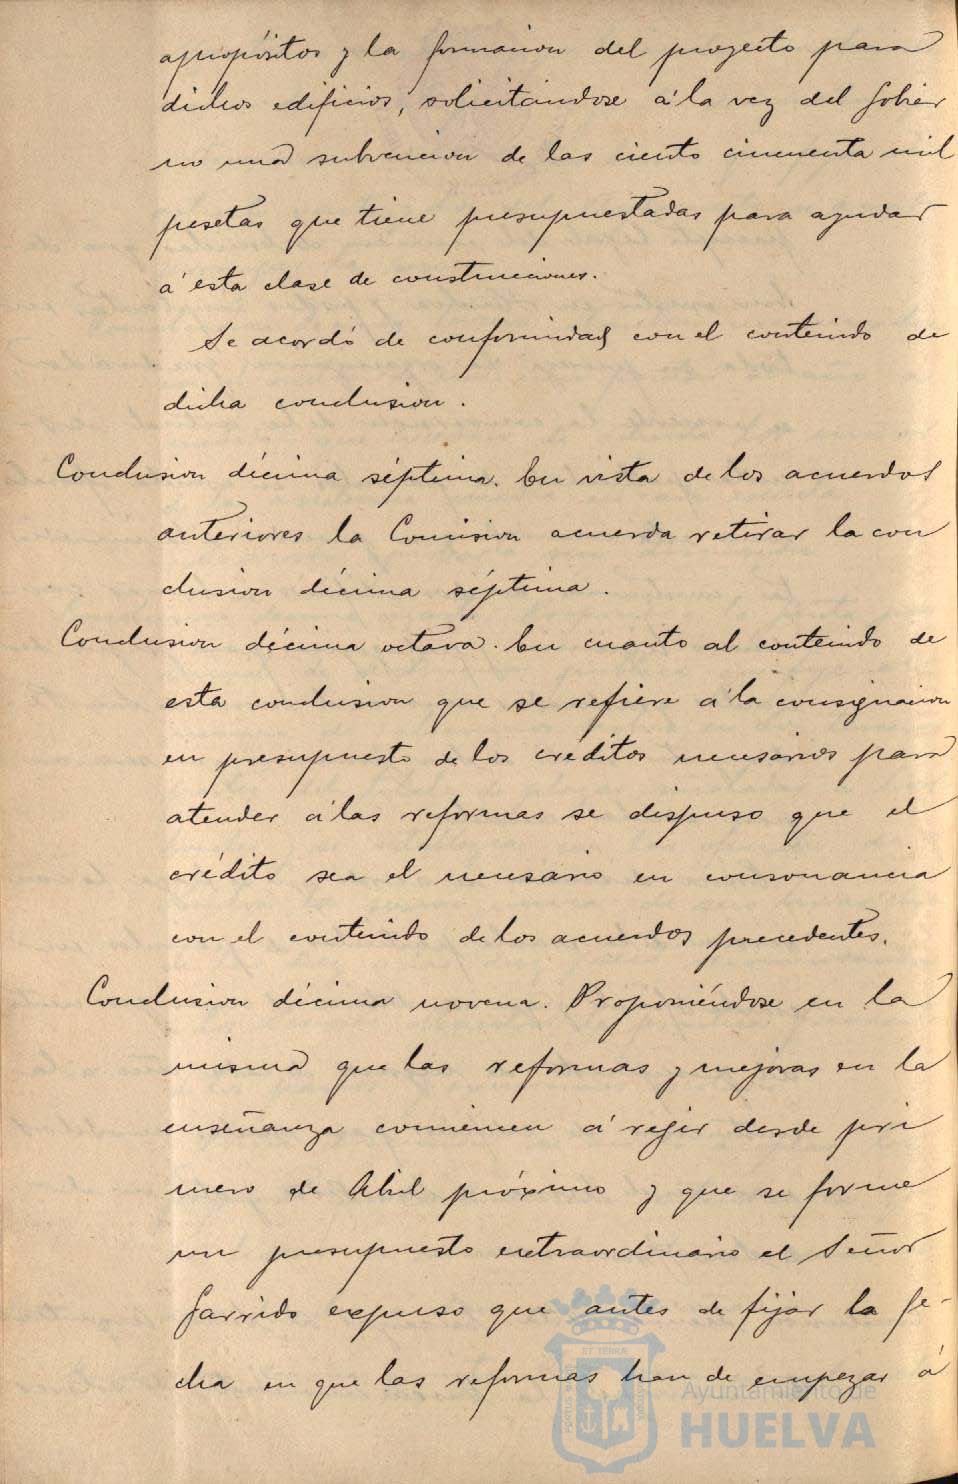 apropósitos y la formacion del proyecto para
dichos edificios, solicitandose á la vez del Gobier
no una subvencion de las ciento cincuenta mil
pesetas que tiene presupuestadas para ayudar
á esta clase de construcciones.
Se acordó de conformidad con el contenido de
dicha conclusion.
Conclusion décima séptima. En vista de los acuerdos
anteriores la Comision acuerda retirar la con
clusion décima séptima.
Conclusion décima octava. En cuanto al contenido de
esta conclusion que se refiere á la consignacion
en presupuesto de los créditos necesarios para
atender á las reformas se dispuso que el
crédito sea el necesario en consonancia
con el contenido de los acuerdos precedentes.
Conclusion décima novena. Proponiéndose en la
misma que las reformas y mejoras en la
enseñanza comiencen á regir desde pri
mero de Abril próximo y que se forme
un presupuesto extraordinario el Señor
Garrido expuso que antes de fijar la fe-
cha en que las reformas han de empezar á
Ayuntamiento de
HUELVA